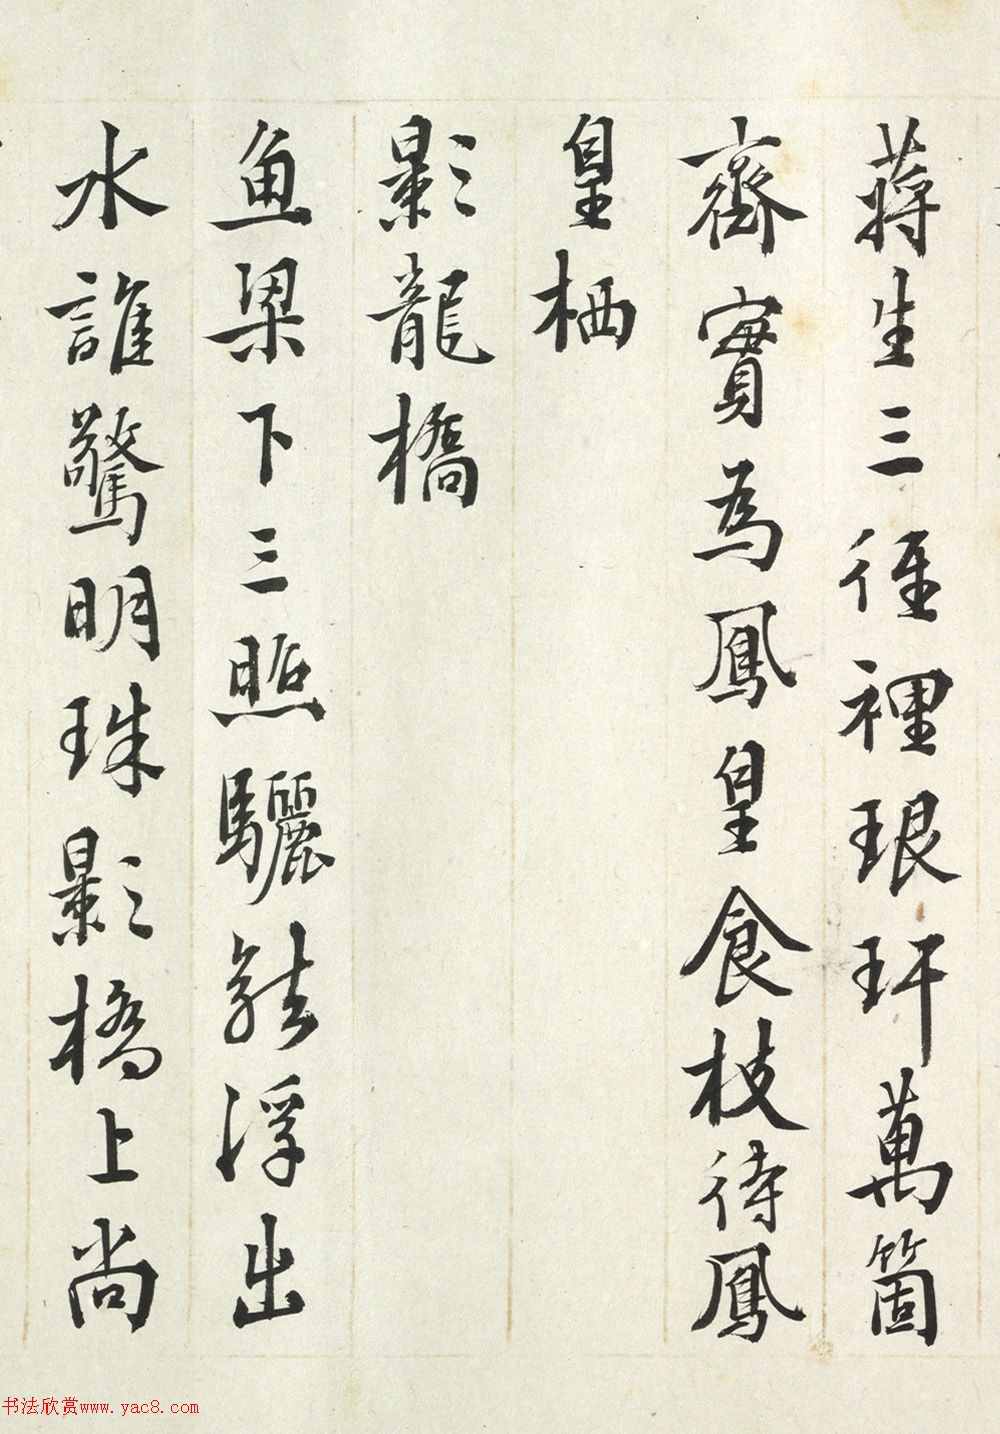 蔣生三徑裡琅玕萬箇
齊實為鳳皇食枝待鳳
皇栖
影龍橋
魚梁下三照驪龍浮出
水誰驚明珠影橋上尚
书法欣赏www.yac8.com